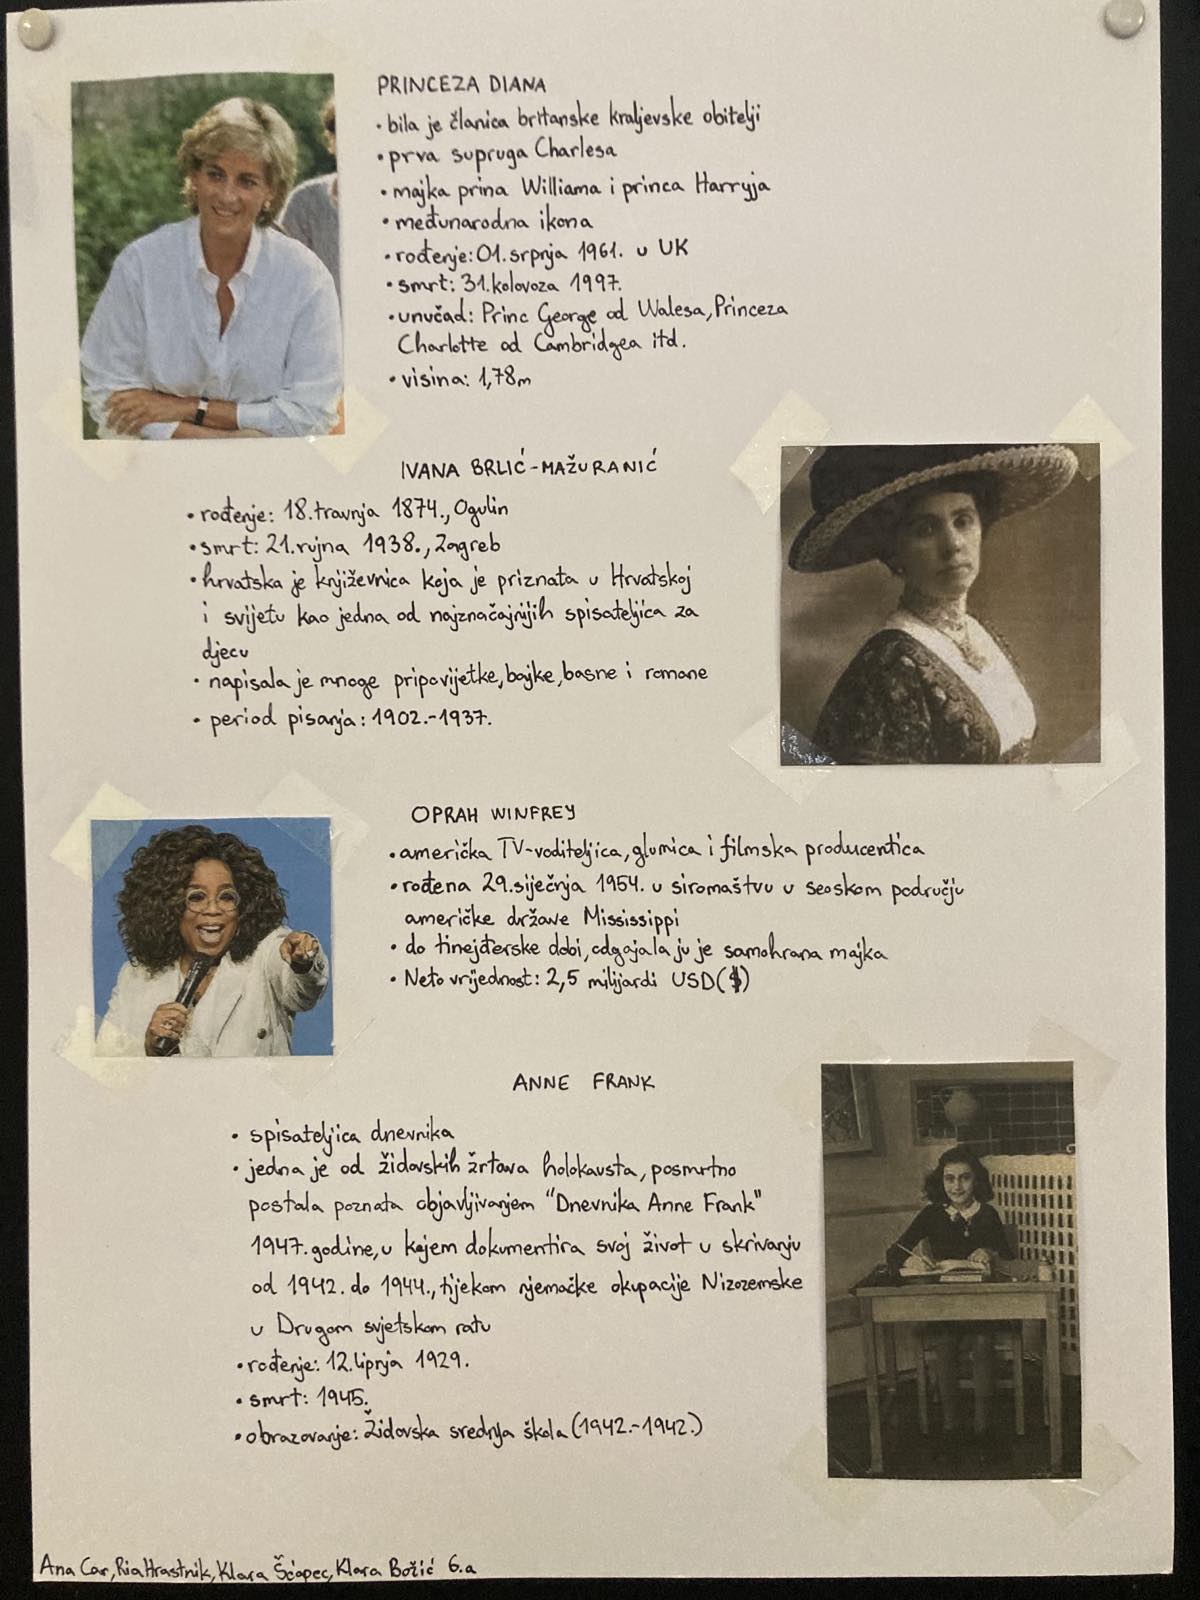 PRINCEZA DIANA
• bila je članica britanske kraljevske obitelji
• prva supruga Charlesa
• majka prina Williama i princa Harryja
• međunarodna ikona
• rođenje: 01. srpnja 1961. u UK
• smrt: 31. kolovoza 1997.
• unučad: Princ George od Walesa, Princeza
Charlotte od Cambridgea itd.
• visina: 1,78m
IVANA BRLIĆ-MAŽURANIĆ
• rođenje: 18. travnja 1874., Ogulin
• smrt: 21. rujna 1938., Zagreb
• hrvatska je književnica koja je priznata u Hrvatskoj
i svijetu kao jedna od najznačajnijih spisateljica za
djecu
• napisala je mnoge pripovijetke, bajke, basne i romane
• period pisanja: 1902.-1937.
OPRAH WINFREY
• američka TV-voditeljica, glumica i filmska producentica
• rođena 29. siječnja 1954. u siromaštvu u seoskom području
američke države Mississippi
• do tinejđerske dobi, odgajala ju je samohrana majka
• Neto vrijednost: 2,5 milijardi USD($)
ANNE FRANK
• spisateljica dnevnika
• jedna je od židovskih žrtava holokausta, posmrtno
postala poznata objavljivanjem "Dnevnika Anne Frank"
1947. godine, u kojem dokumentira svoj život u skrivanju
od 1942. do 1944., tijekom njemačke okupacije Nizozemske
u Drugom svjetskom ratu
• rođenje: 12. lipnja 1929.
• smrt: 1945.
• obrazovanje: Židovska srednja škola (1942.-1942.)
Ana Car, Ria Hrastnik, Klara Šćapec, Klara Božić 6.a